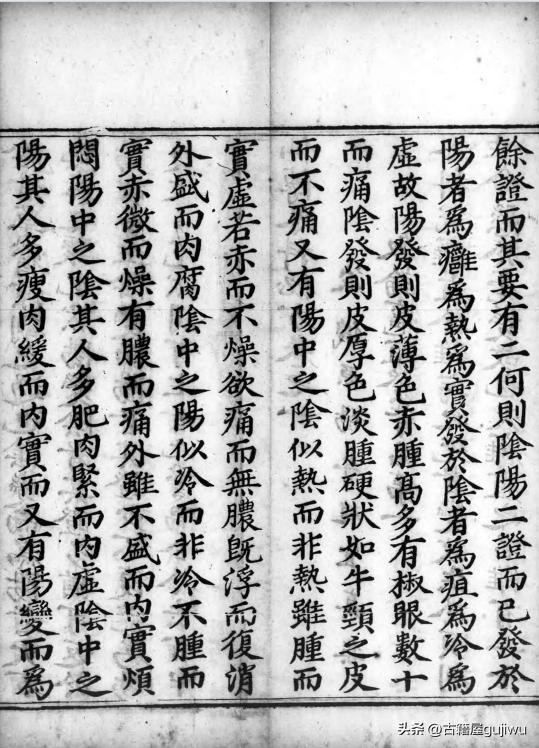 餘證而其要有二何則陰陽二證而已發於
陽者爲癰爲熱爲實發於陰者爲疽爲冷爲
虛故陽發則皮薄色赤腫高多有椒眼數十
而痛陰發則皮厚色淡腫硬狀如牛頸之皮
而不痛又有陽中之陰似熱而非熱雖腫而
實虛若赤而不燥欲痛而無膿旣浮而復消
外盛而肉腐陰中之陽似冷而非冷不腫而
實赤微而燥有膿而痛外雖不盛而內實煩
悶陽中之陰其人多肥肉緊而內虛陰中之
陽其人多瘦肉緩而內實而又有陽變而爲
头条 @古籍屋gujiwu